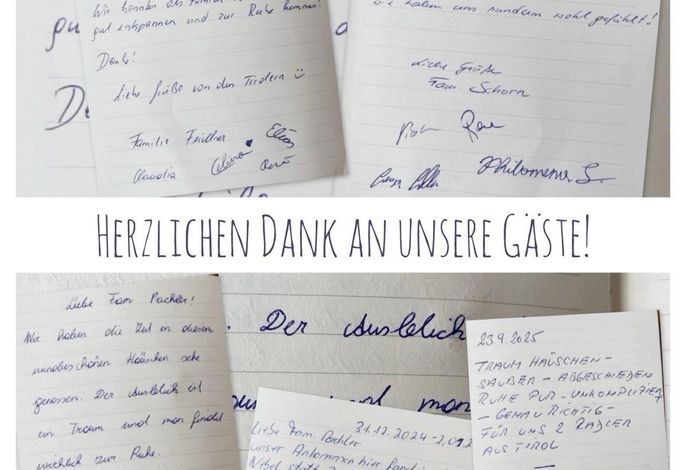 Wir konnten als Familie
gut entspannen und zur Ruhe kommen!
Danke!
Liebe Grüße von den Tirolern
Familie
Claudia
wir haben uns rundum wohl gefühlt!
Liebe Grüße
Fam. Schorn
Philomena S.
HERZLICHEN DANK AN UNSERE GÄSTE!
Liebe Fam Pachler!
Wir haben die Zeit in diesem
wunderschönen Häuschen sehr
genossen. Der Ausblick ist
ein Traum und man findet
wirklich zur Ruhe.
. Der Ausblick
und man
31.12.2024 -
Liebe Fam. Pachler
unser Ankommen hier fand
Nebel statt
23.9.2025
TRAUM HÄUSCHEN-
SAUBER - ABGESCHIEDEN
RUHE PUR - UNKOMPLIZIERT
- GENAU RICHTIG -
FÜR UNS 2 RADLER
AUS TIROL